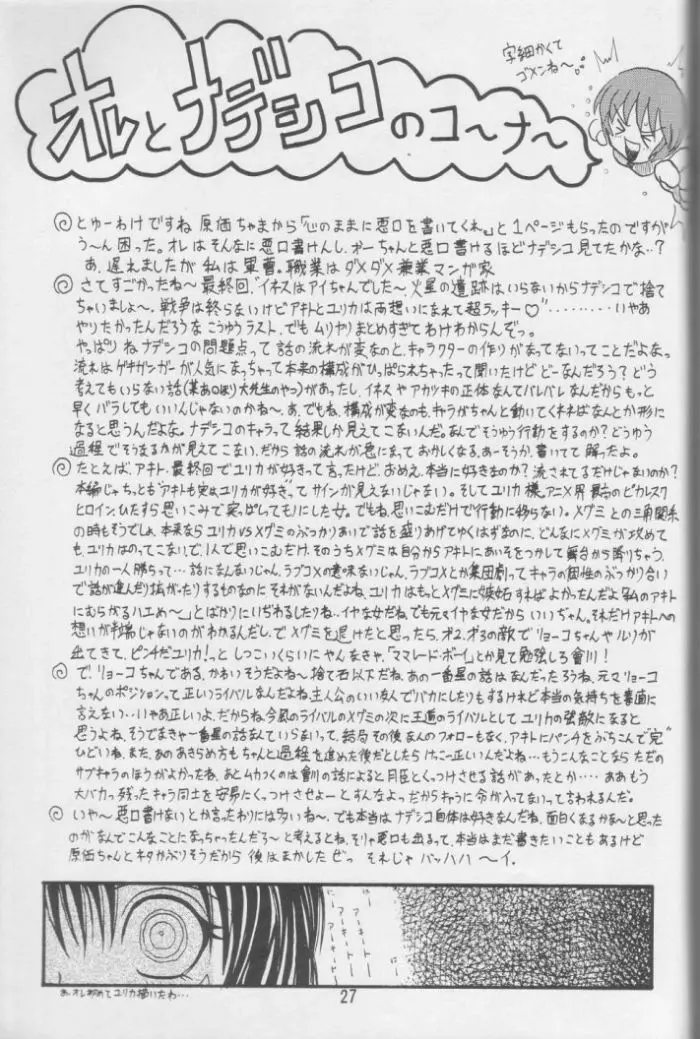 オレとナデシコのコ〜ナ〜
字細かくて
ゴメンね〜。。
とゆーわけですね 原価ちゃまから「心のままに悪口を書いてくれ。」と1ページもらったのですが
う〜ん困った。オレはそんなに悪口書けんし、ボーちゃんと悪口書けるほどナデシコ見てたかな‥?
あ、遅えましたが 私は軍曹。職業はダメダメ兼業マンガ家
さてすごかったね〜最終回、"イネスはアイちゃんでした〜火星の遺跡はいらないからナデシコで捨て
ちゃいましょ〜。戦争は終らないけどアキトとユリカは両想いになれて超ラッキー♡"………いやあ
やりたかったんだろうな こうゆうラスト、でもムリヤリまとめすぎてわけわからんぞっ。
やっぱりねナデシコの問題点って話の流れが変なのと、キャラクターの作りがなってないってことだよな。
流れはゲキガンガーが人気になっちゃって本来の構成がひっぱられちゃったって聞いたけどどーなんだろう?どう
考えてもいらない話(某あ○ほり大先生のやつ)があったし、イネスやアカツキの正体なんてバレバレなんだからもっと
早くバラしてもいいんじゃないのかね〜。あ、でもね、構成が変なのも、キャラがちゃんと動いてくれればなんとか形に
なると思うんだよな。ナデシコのキャラって結果しか見えてこないんだ。なんでそうゆう行動をするのか?どうゆう
過程でそうなるかが見えてこない。だから話の流れが急になっておかしくなる、あーそうか、書いてて解ったよ。
たとえばアキト、最終回でユリカが好きって言ったけど、おめえ、本当に好きなのか?流されてるだけじゃないのか?
本編じゃちっとも"アキトも実はユリカが好き"ってサインが見えないじゃない。そしてユリカ様、アニメ界最高のピカレスク
ヒロイン、ひたすら思いこみで突っぱしてモノにした女。でもね、思いこむだけで行動に移らない。メグミとの三角関係
の時もそうでしょ、本来ならユリカVSメグミのぶっかりあいで話を盛りあげてゆくはずなのに、どんなにメグミが攻めて
も、ユリカはのってこないで、1人で思いこむだけ、そのうちメグミは自分からアキトにあいそをつかして舞台から降りちゃう。
ユリカの一人勝ちって…話になんないじゃん、ラブコメの意味ないじゃん。ラブコメとか集団劇ってキャラの個性のぶっかり合い
で話が進んだり拡がったりするものなのにそれがないんだよね、ユリカはもっとメグミに嫉妬すればよかったんだよ「私のアキト
にむらがるハエめ〜」とばかりにいぢわるしたりね‥イヤな女だね、でも元々イヤな女だからいいぢゃん。それだけアキトへの
想いが半端じゃないのがわかるんだし、で メグミを退けたと思ったら、オ2、オ3の敵でリョーコちゃんやルリが
出てきて、ピンチだユリカ!っとしつこいくらいにやんなきゃ、「ママレード・ボーイ」とか見て勉強しろ會川!
で、リョーコちゃんである、かわいそうだよね〜捨て石以下だね、あの一番星の話はなんだったろうね、元々リョーコ
ちゃんのポジションって正しいライバルなんだよね、主人公のいい友人でバカにしたりもするけれど本当の気持ちを素直に
言えない…いやあ正しいよ、だからね、今風のライバルのメグミの次に王道のライバルとして ユリカの強敵になると
思うよね、そうでまきゃ一番星の話なんていらないって、結局その後なんのフォローもなく、アキトにパンチをぶちこんで"完"
ひどいね、また、あのあきらめ方もちゃんと過程を進めた後だとしたらけっこー正しいんだよね…もうこんなことなら ただの
サブキャラのほうがよかったね、あとムカつくのは會川の話によると月臣とくっつけさせる話があったとか… ああもう
大バカっ残ったキャラ同士を安易にくっつけさせよーとすんなよっだからキャラに命が入ってないって言われるんだ。
いや〜悪口書けないとか言ったわりには多いね〜、でも本当はナデシコ自体は好きなんだね、面白くなるかな〜と思った
のがなんでこんなことになっちゃったんだろ〜と考えるとね、そりゃ悪口も出るって、本当はまだ書きたいこともあるけど
原価ちゃんとネタかぶりそうだから 後はまかしたぜっ それじゃ バッハハ〜イ。
は—
アーキト—
アーキト—
は—
に—
アーキト—
に—
あ、オレ初めてユリカ描いたわ…
27